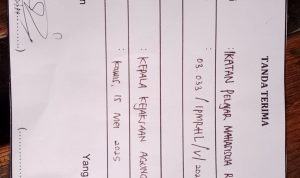 TANDA TERIMA
: IKATAN PELAJAR MAHASISWA R
: 03.033/IPMR-HL/V/202
: KEPALA KEJAKSAAN AGUNG
: KAMIS, 15 MEI 2025
Yang
an